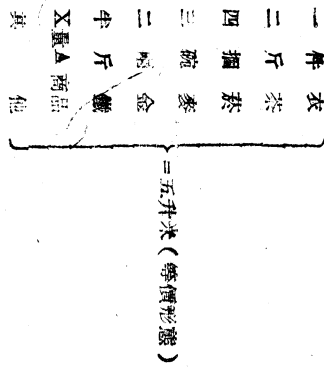 一件衣
二斤茶
四捆菸
三碗麥
二 金
半斤鐵
X量A商品
其他
=五升米(等價形態)